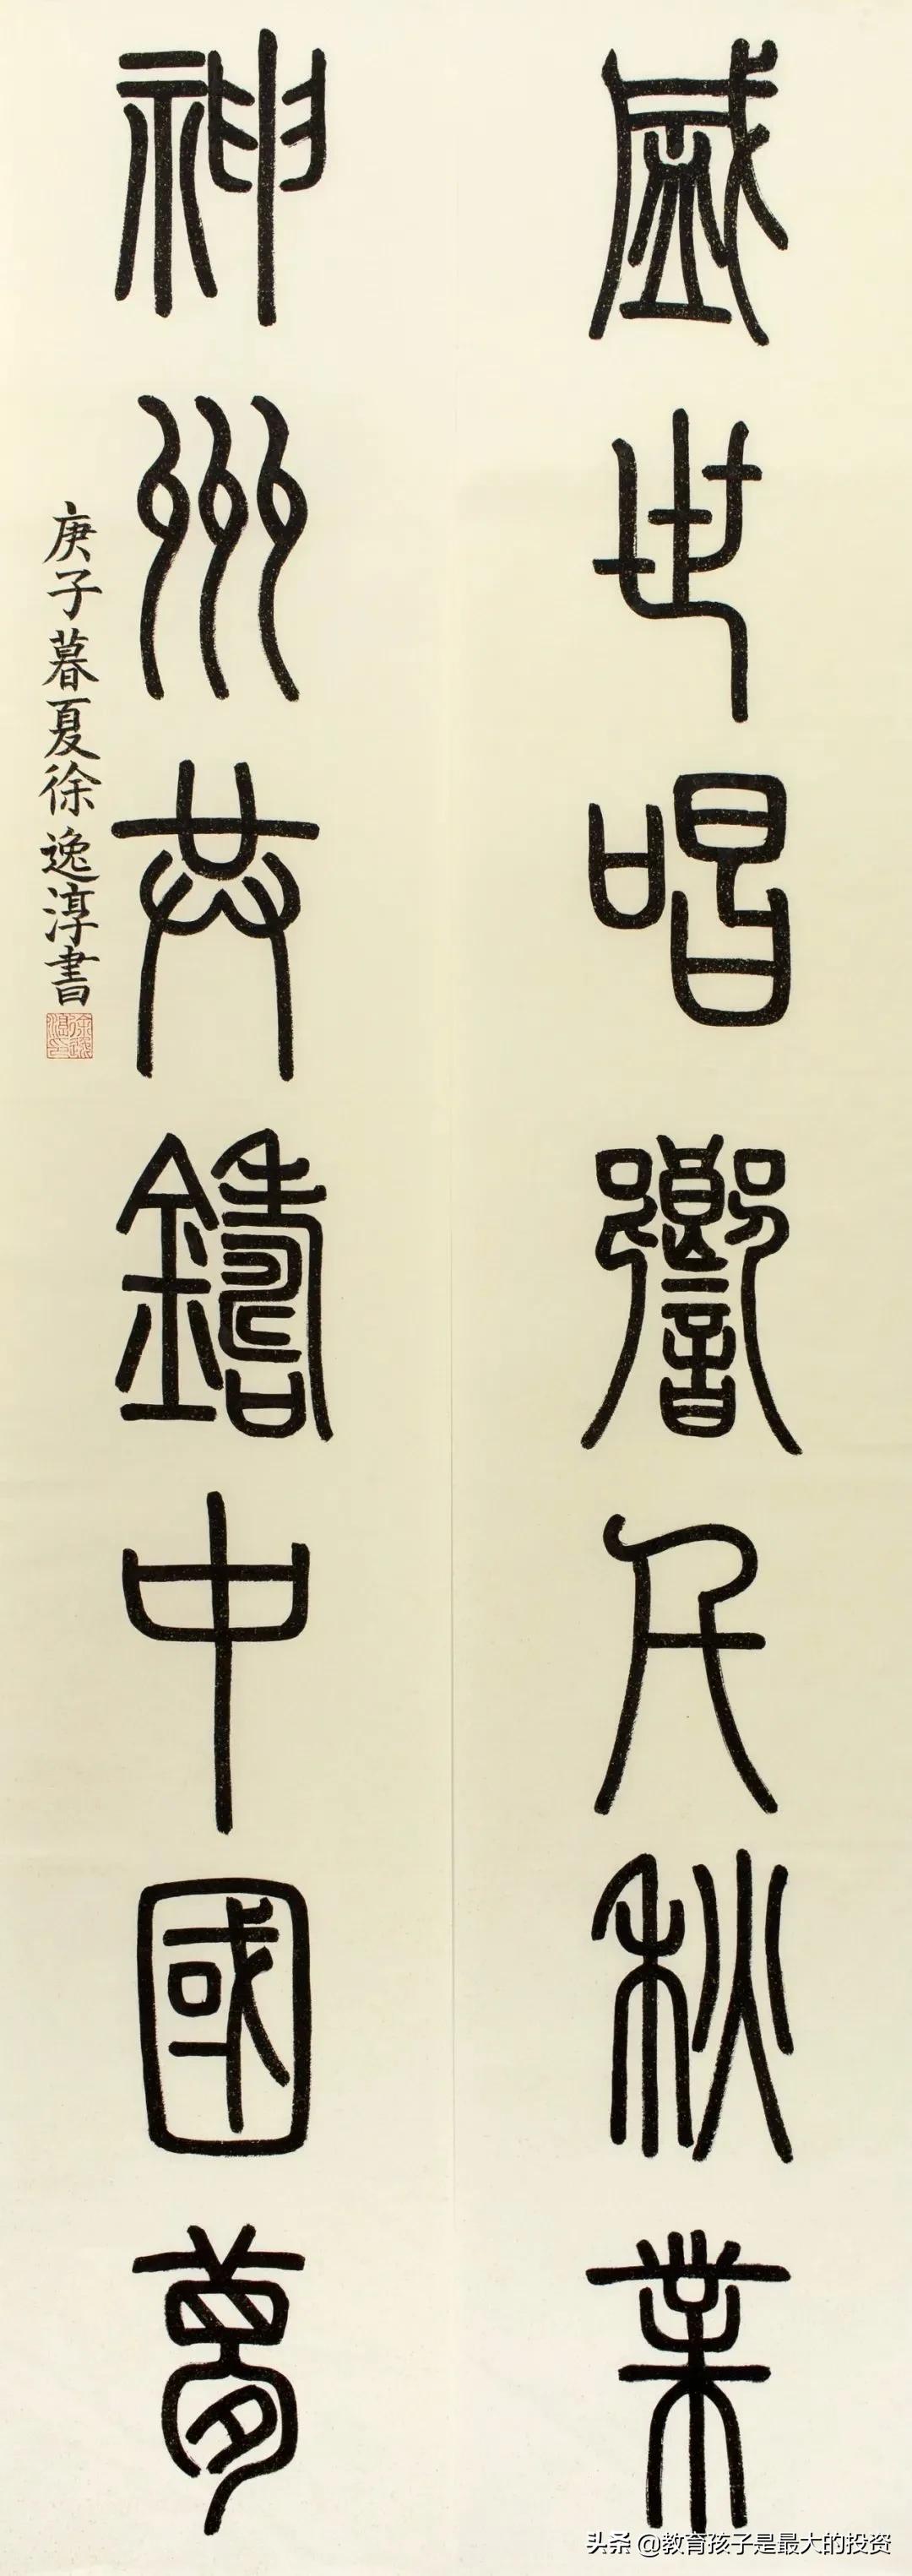 盛世唱響千秋業
神州共鑄中國夢
庚子暮夏徐逸淳書
徐逸淳印
头条 @教育孩子是最大的投资